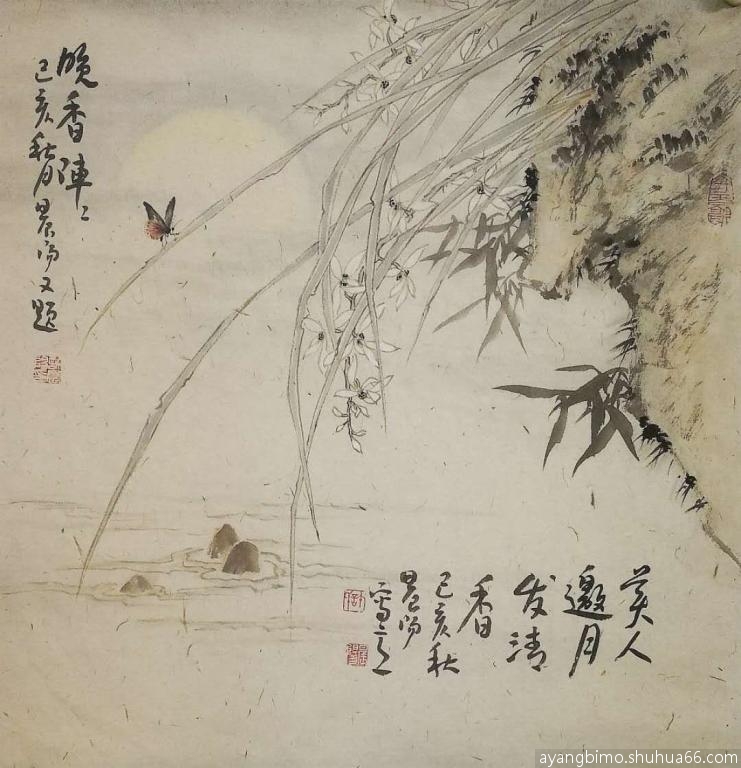 晚香陣々
己亥秋月晨阳又題
美人
邀月
发清
香
己亥秋
晨阳
写之
ayangbimo.shuhua66.com